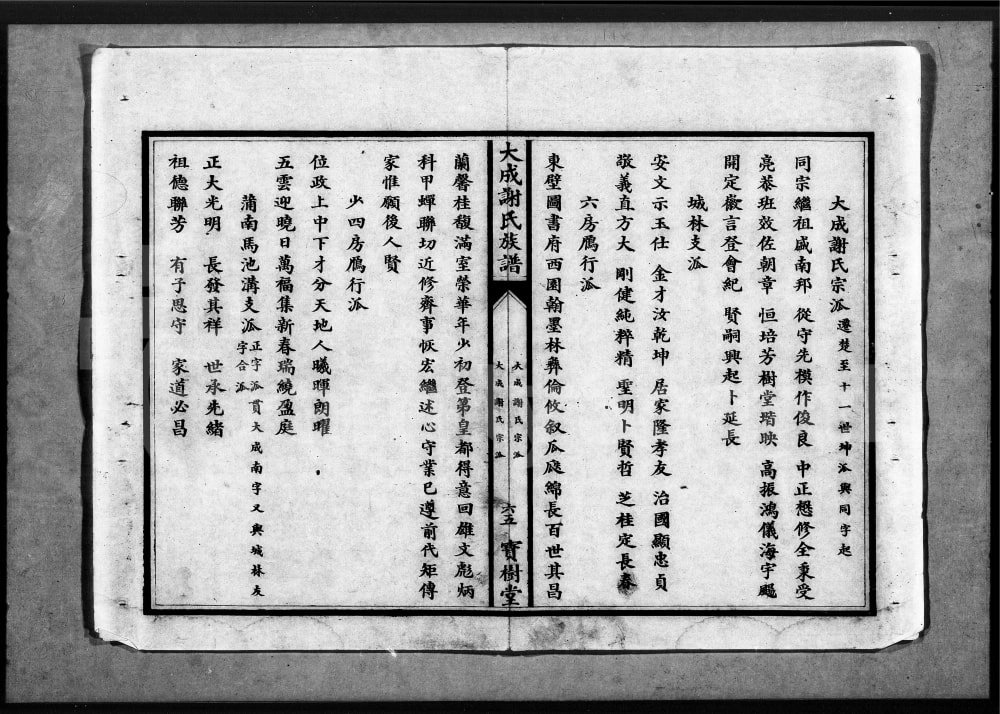 大成謝氏宗派 遷楚至十一世坤派與同字起
同宗繼祖威南邦 從守先模作俊良 中正懋修全秉受
亮恭班效佐朝章 恒培芳樹堂堦映 高振鴻儀海宇颺
開定徽言登會紀 賢嗣興起卜延長
城林支派
安文示玉仕 金才汝乾坤 居家隆孝友 治國顯忠貞
敬義直方大 剛健純粹精 聖明卜賢哲 芝桂定長春
六房鴈行派
東壁圖書府西園翰墨林彝倫攸敘瓜瓞綿長百世其昌
大成謝氏族譜
大成謝氏宗派
大成謝氏宗派
六五
寶樹堂
蘭馨桂馥滿室榮華年少初登第皇都得意回雄文彪炳
科甲蟬聯切近修齊事恢宏繼述心守業已遵前代矩傳
家惟願後人賢
少四房鴈行派
位政上中下才分天地人曦暉朗曜
五雲迎曉日萬福集新春瑞繞盈庭
蒲南馬池溝支派 正字派貫大成南字又與城林友
字合派
正大光明 長發其祥 世承先緒
祖德聯芳 有子思守 家道必昌